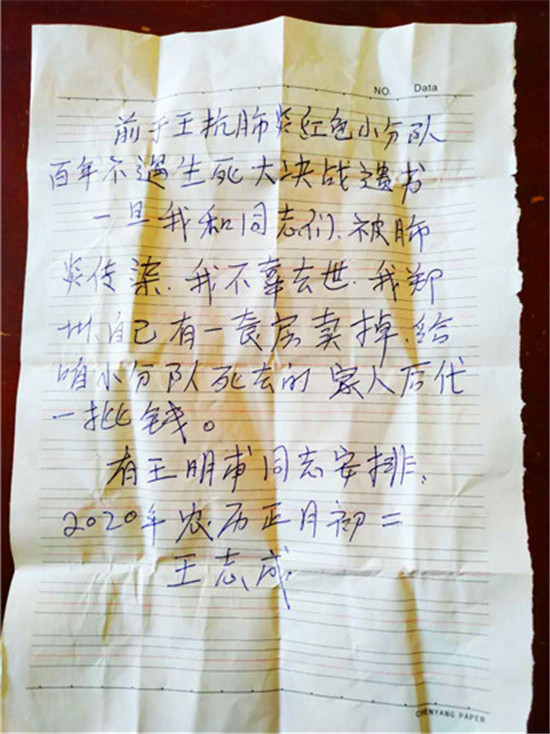 NO. Data
前于王抗肺炎红色小分队
百年不遇生死大决战遗书
一旦我和同志们、被肺
炎传染、我不幸去世、我郑
州自己有一套房卖掉、给
咱小分队死去的家人后代
一批钱。
有王明甫同志安排、
2020年农历正月初二
王志成
CHENYANG PAPER